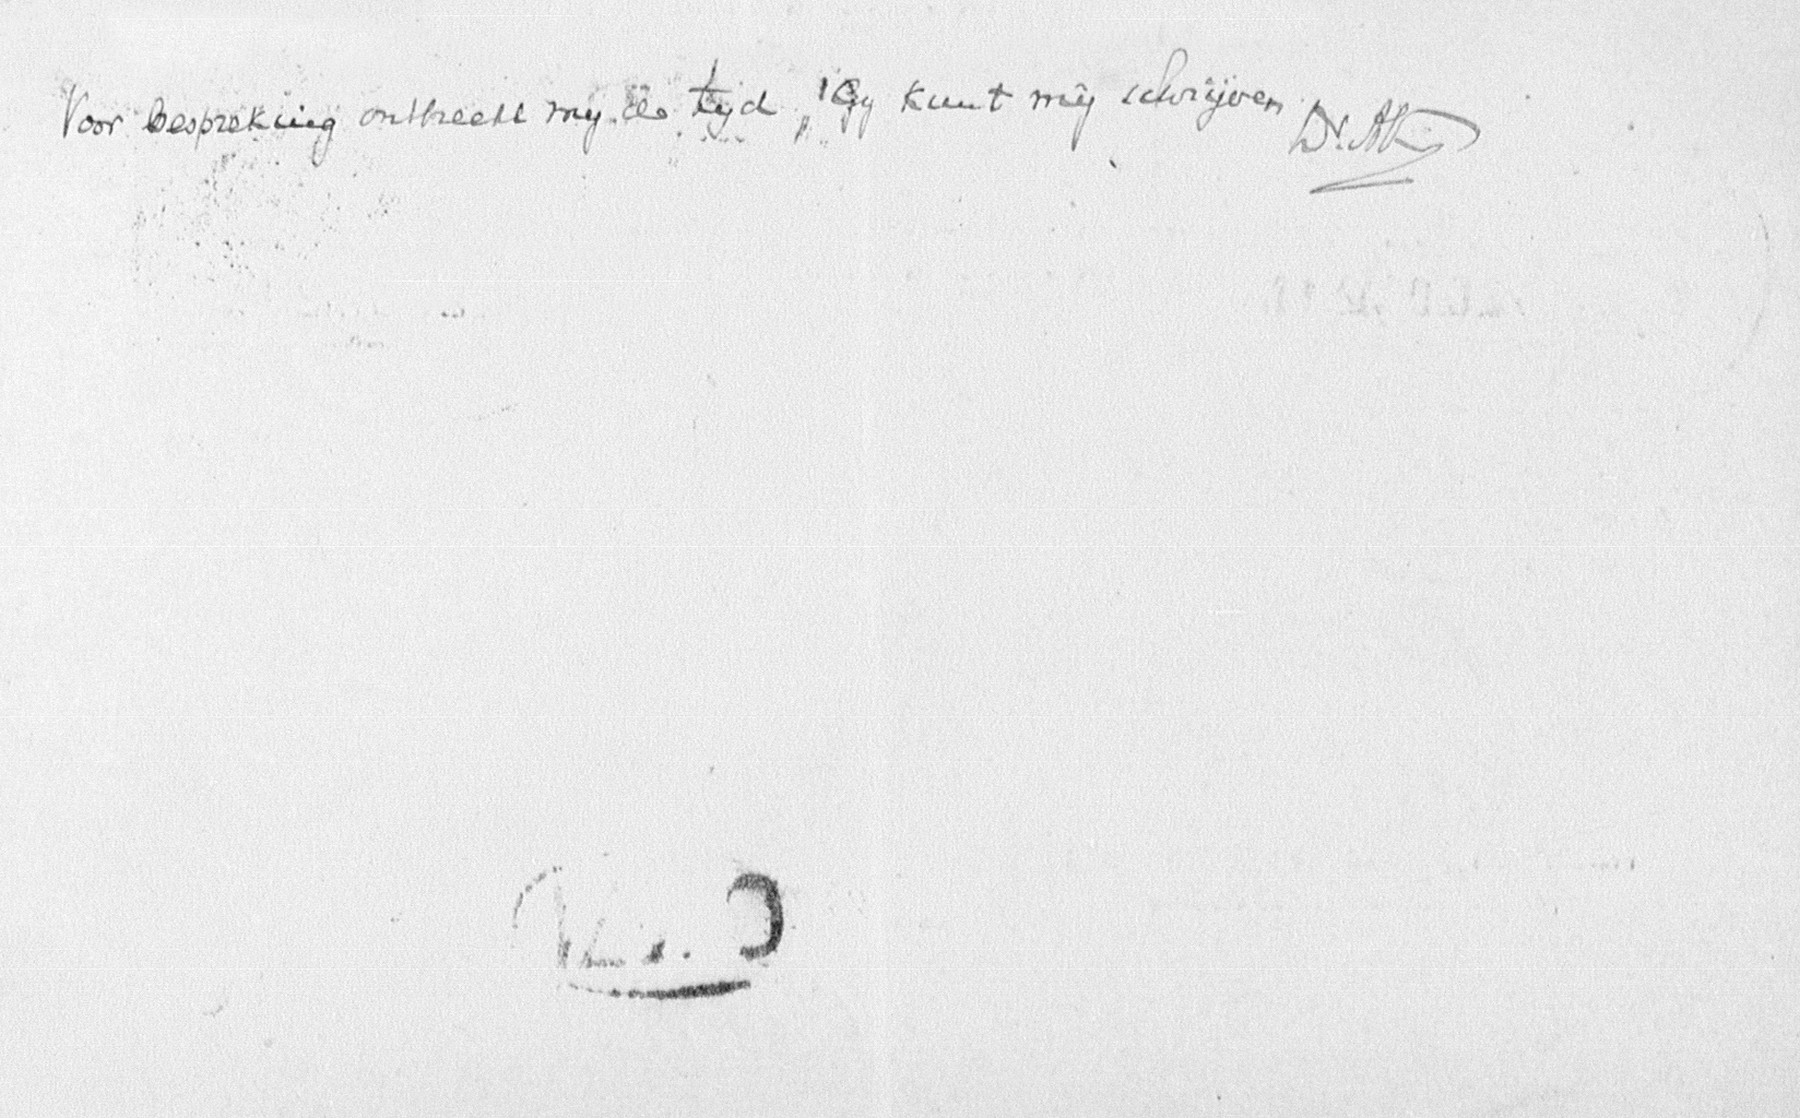 Voor bespreking ontbreekt my de tyd, Gy kunt mij schrijven